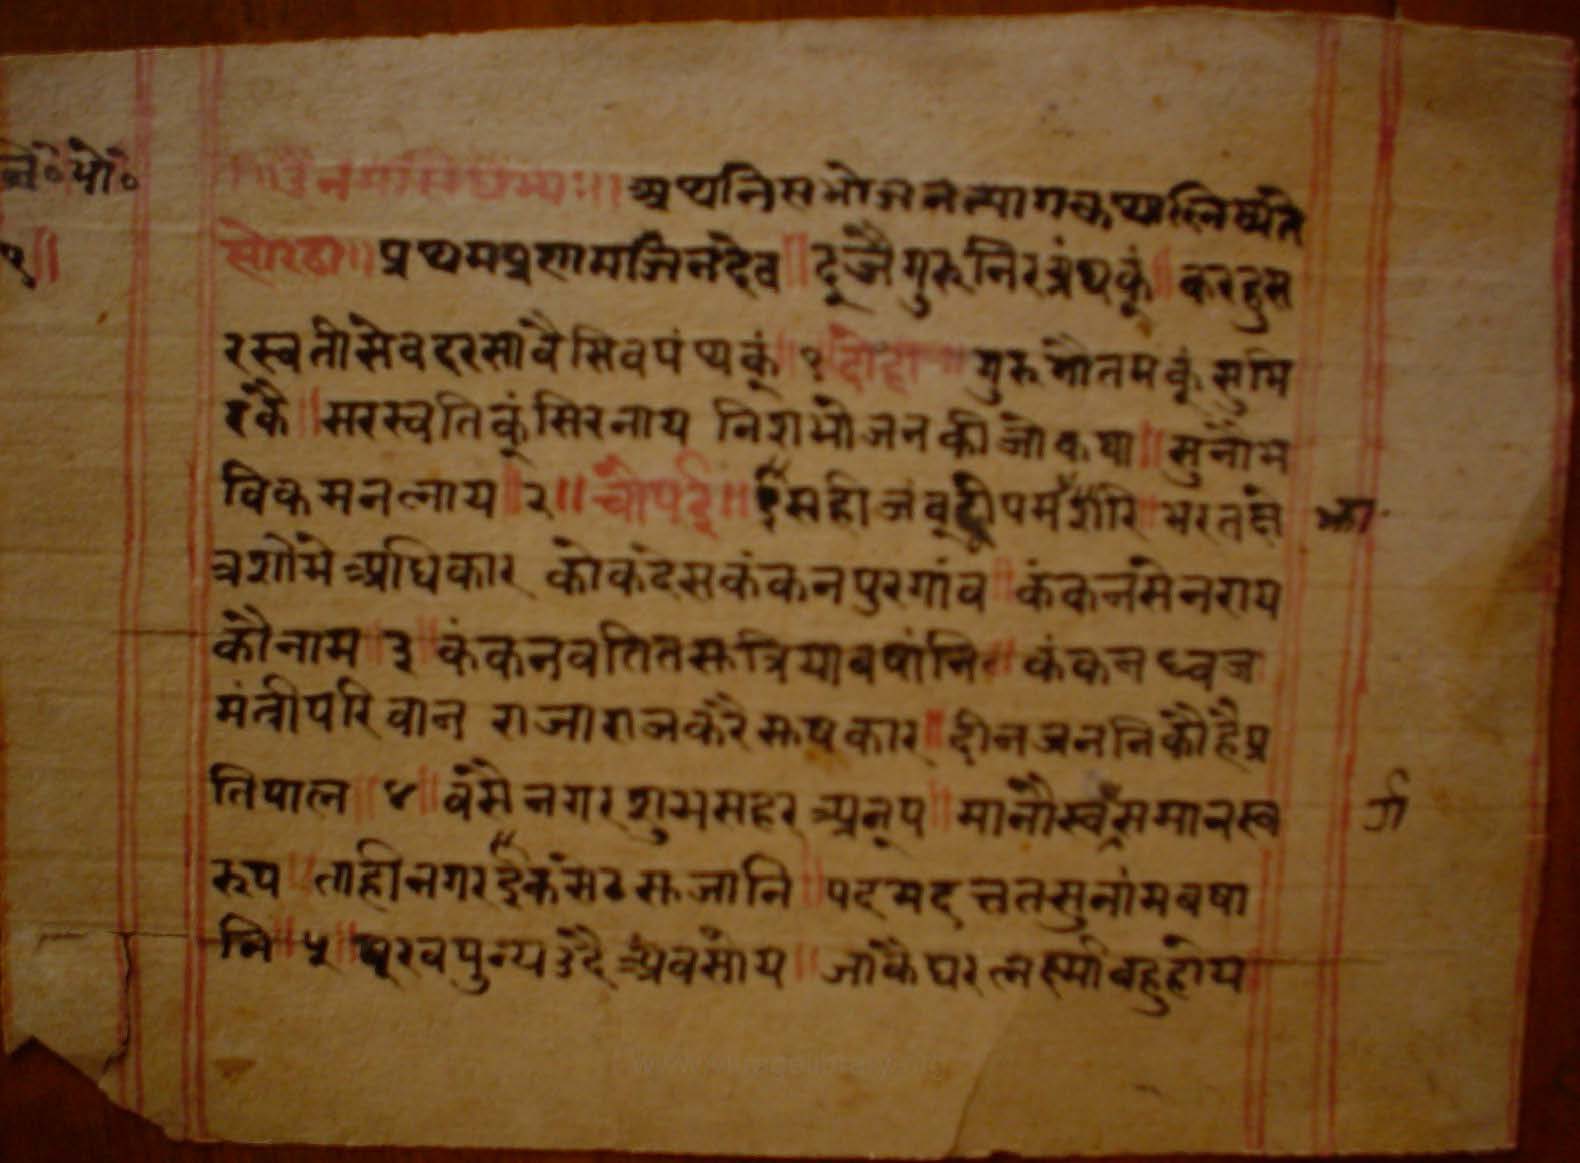 नि॰ भो॰
॥ नमः सिद्धेभ्यः ॥ अथ निसभोजनत्यागकथा लिष्यते
१॥
सोरठा ॥ प्रथम प्रणाम जिनदेव ॥ दूजै गुरु निरग्रंथकूं ॥ करहु स
रस्वती सेव दरसावै सिवपंथकूं ॥ १ दोहा ॥ गुरु गौतमकूं सुमि
रकै ॥ सरस्वतिकूं सिरनाय निशभोजन की जो कथा ॥ सुनौ भ
विक मन ल्याय ॥ २ ॥ चौपई ॥ ईसही जंबूद्वीप मं ॥ भरतक्षे
त्र शोभे अधिकार कोकंदेस कंकनपुर गांव ॥ कंकनसेन राय
कौ नाम ॥ ३ ॥ कंकनवति तस त्रिया बषांनि ॥ कंकनध्वज
मंत्री परिवान राजा राज करै सुषकार ॥ दीन जननि कौ है प्र
तिपाल ॥ ४ ॥ वसै नगर शुभ सहर अनूप ॥ मानौ स्वर्ग समान स्व
र्ग
रूप ॥ ताही नगर ईक सेठ सुजानि ॥ पदमदत्त तसु नांम बषा
नि ॥ ५ ॥ पूरव पुन्य उदै अवसोय ॥ जाकै घर लक्ष्मी बहु होय